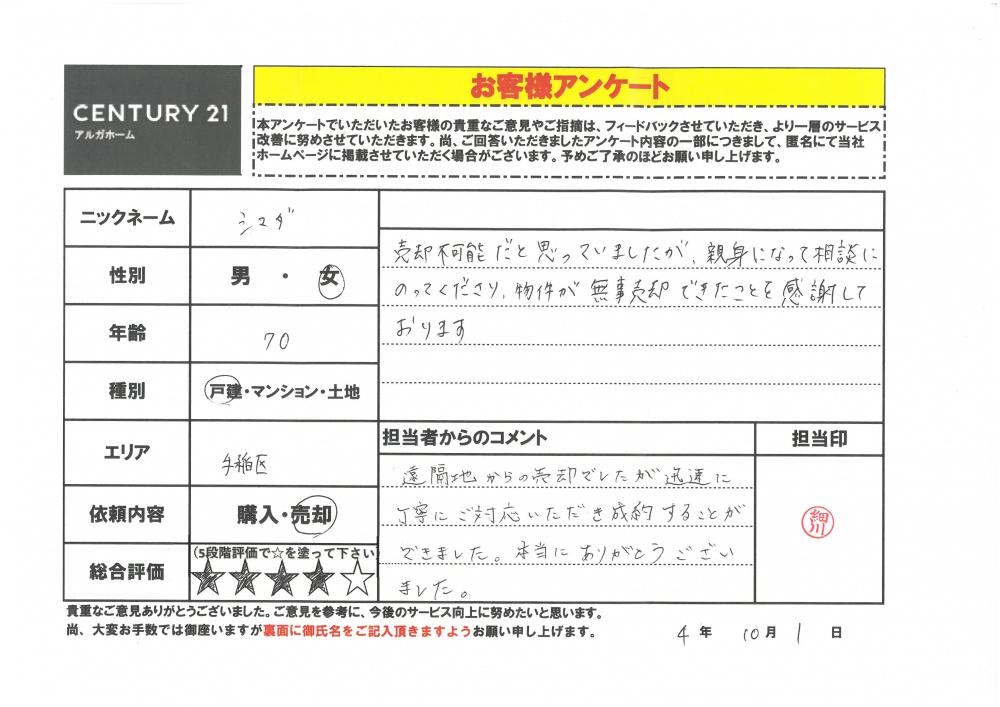 CENTURY 21
アルガホーム
お客様アンケート
本アンケートでいただいたお客様の貴重なご意見やご指摘は、フィードバックさせていただき、より一層のサービス
改善に努めさせていただきます。尚、ご回答いただきましたアンケート内容の一部につきまして、匿名にて当社
ホームページに掲載させていただく場合がございます。予めご了承のほどお願い申し上げます。
ニックネーム シマダ
性別 男 ・ 女
年齢 70
種別 戸建・マンション・土地
エリア 手稲区
依頼内容 購入・売却
総合評価 (5段階評価で☆を塗って下さい)
★★★★☆
売却不可能だと思っていましたが、親身になって相談に
のってくださり、物件が無事売却できたことを感謝して
おります
担当者からのコメント
遠隔地からの売却でしたが迅速に
丁寧にご対応いただき成約することが
できました。本当にありがとうござい
ました。
担当印
細川
貴重なご意見ありがとうございました。ご意見を参考に、今後のサービス向上に努めたいと思います。
尚、大変お手数では御座いますが裏面に御氏名をご記入頂きますようお願い申し上げます。
4年 10月 1日